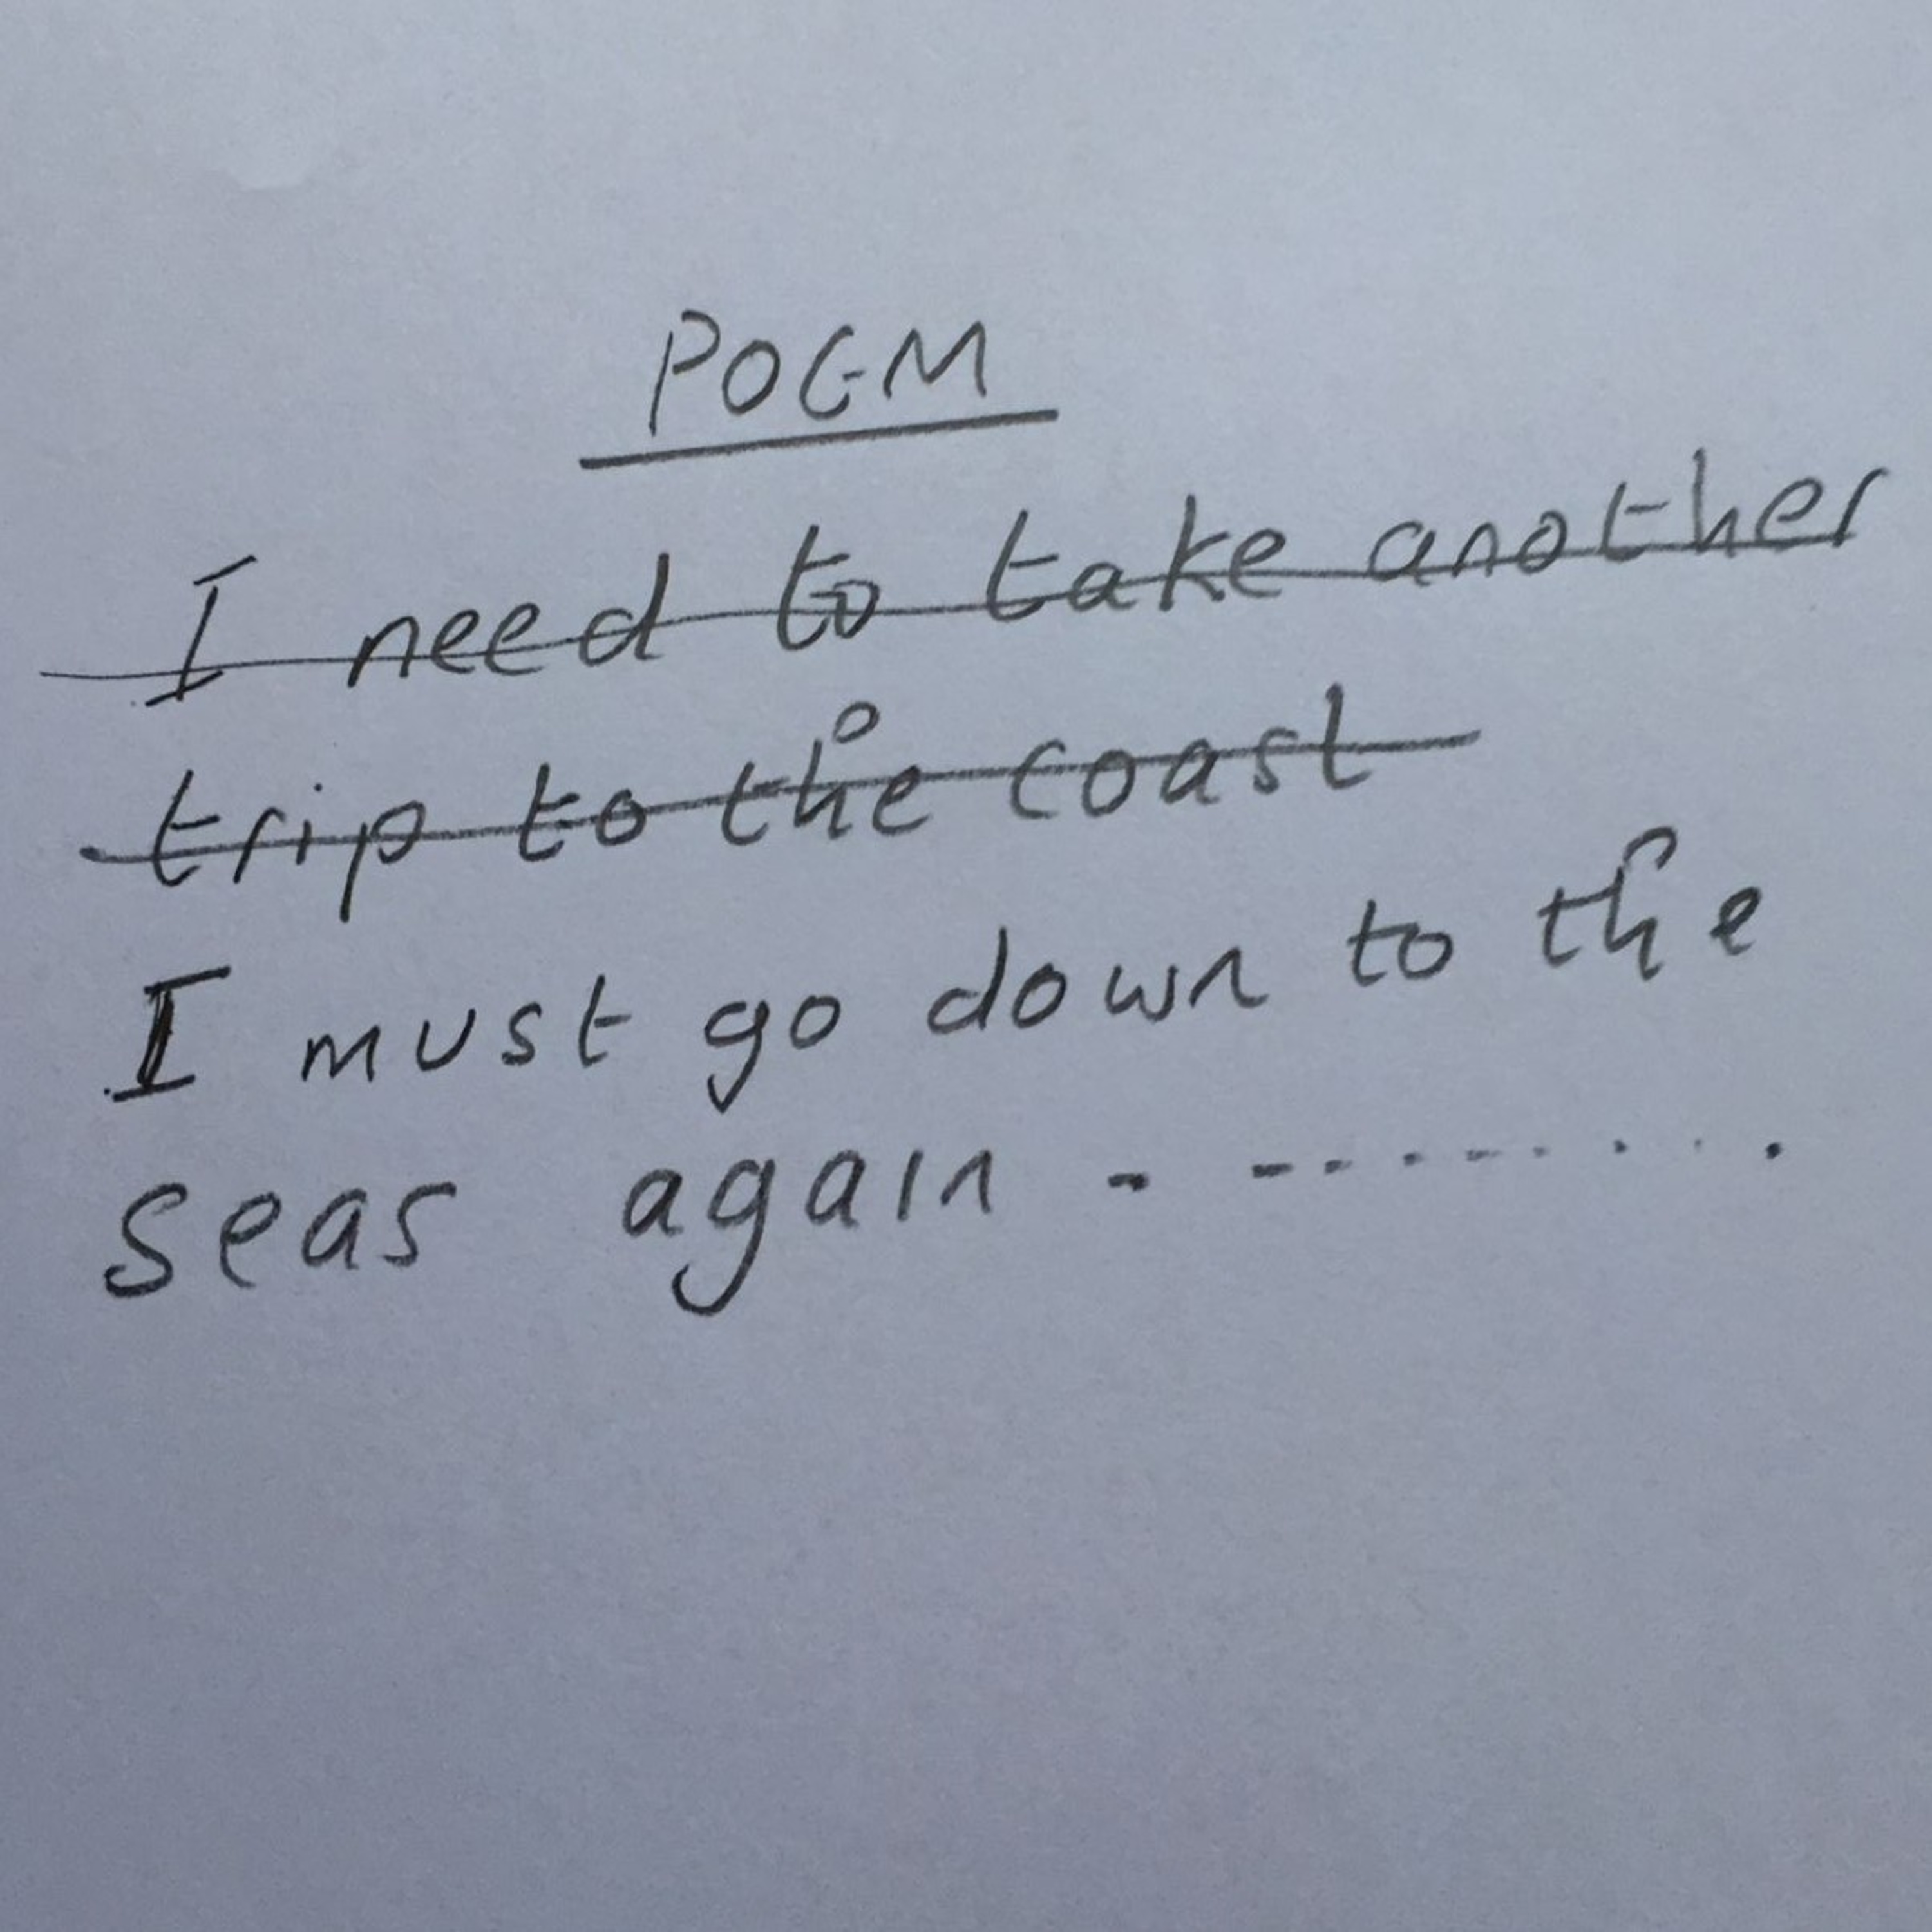 POEM
I need to take another
trip to the coast
I must go down to the
seas again - - - - - - - . . . .